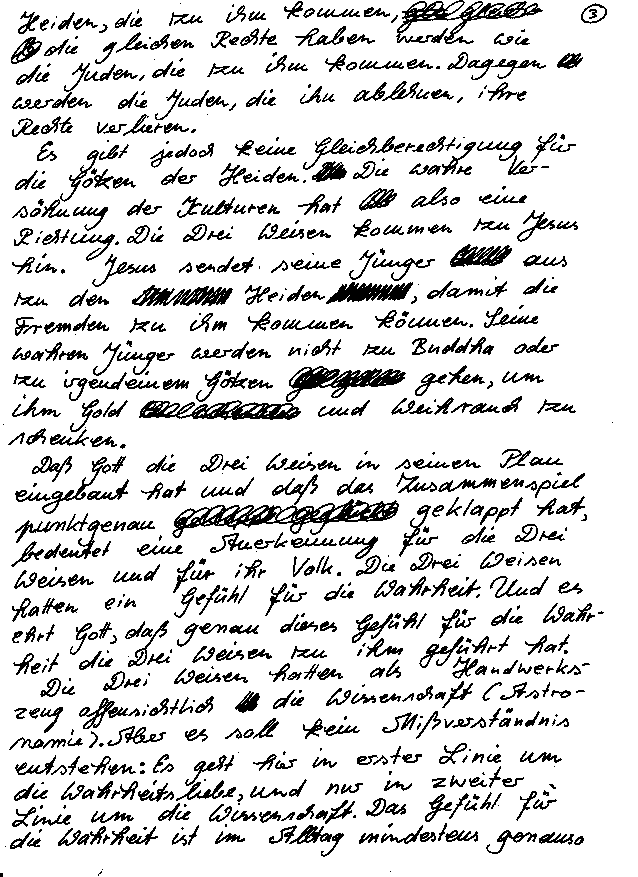 Heiden, die zu ihm kommen,
③
die gleichen Rechte haben werden wie
die Juden, die zu ihm kommen. Dagegen
werden die Juden, die ihn ablehnen, ihre
Rechte verlieren.
Es gibt jedoch keine Gleichberechtigung für
die Götzen der Heiden. Die wahre Ver-
söhnung der Kulturen hat also eine
Richtung. Die Drei Weisen kommen zu Jesus
hin. Jesus sendet seine Jünger aus
zu den Heiden, damit die
Fremden zu ihm kommen können. Seine
wahren Jünger werden nicht zu Buddha oder
zu irgendeinem Götzen gehen, um
ihm Gold und Weihrauch zu
schenken.
Daß Gott die Drei Weisen in seinen Plan
eingebaut hat und daß das Zusammenspiel
punktgenau geklappt hat,
bedeutet eine Anerkennung für die Drei
Weisen und für ihr Volk. Die Drei Weisen
hatten ein Gefühl für die Wahrheit. Und es
ehrt Gott, daß genau dieses Gefühl für die Wahr-
heit die Drei Weisen zu ihm geführt hat.
Die Drei Weisen hatten als Handwerks-
zeug offensichtlich die Wissenschaft (Astro-
nomie). Aber es soll kein Mißverständnis
entstehen: Es geht hier in erster Linie um
die Wahrheitsliebe, und nur in zweiter
Linie um die Wissenschaft. Das Gefühl für
die Wahrheit ist im Alltag mindestens genauso